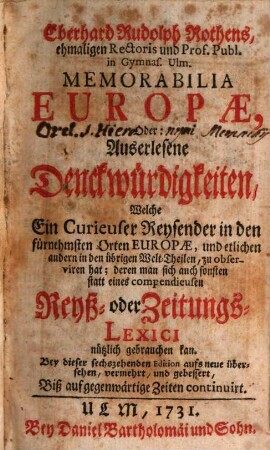 Eberhard Rudolph Rothens,
ehmaligen Rectoris und Prof. Publ.
in Gymnas. Ulm.
MEMORABILIA
EUROPÆ,
Oder:
Auserlesene
Denckwürdigkeiten,
Welche
Ein Curieuser Reysender in den
fürnehmsten Orten EUROPÆ, und etlichen
andern in den übrigen Welt-Theilen, zu obser-
viren hat; deren man sich auch sonsten
statt eines compendieusen
Reyß- oder Zeitungs-
LEXICI
nützlich gebrauchen kan.
Bey dieser sechszehenden Edition aufs neue über-
sehen, vermehrt, und gebessert,
Biß auf gegenwärtige Zeiten continuirt.
ULM, 1731.
Bey Daniel Bartholomäi und Sohn.